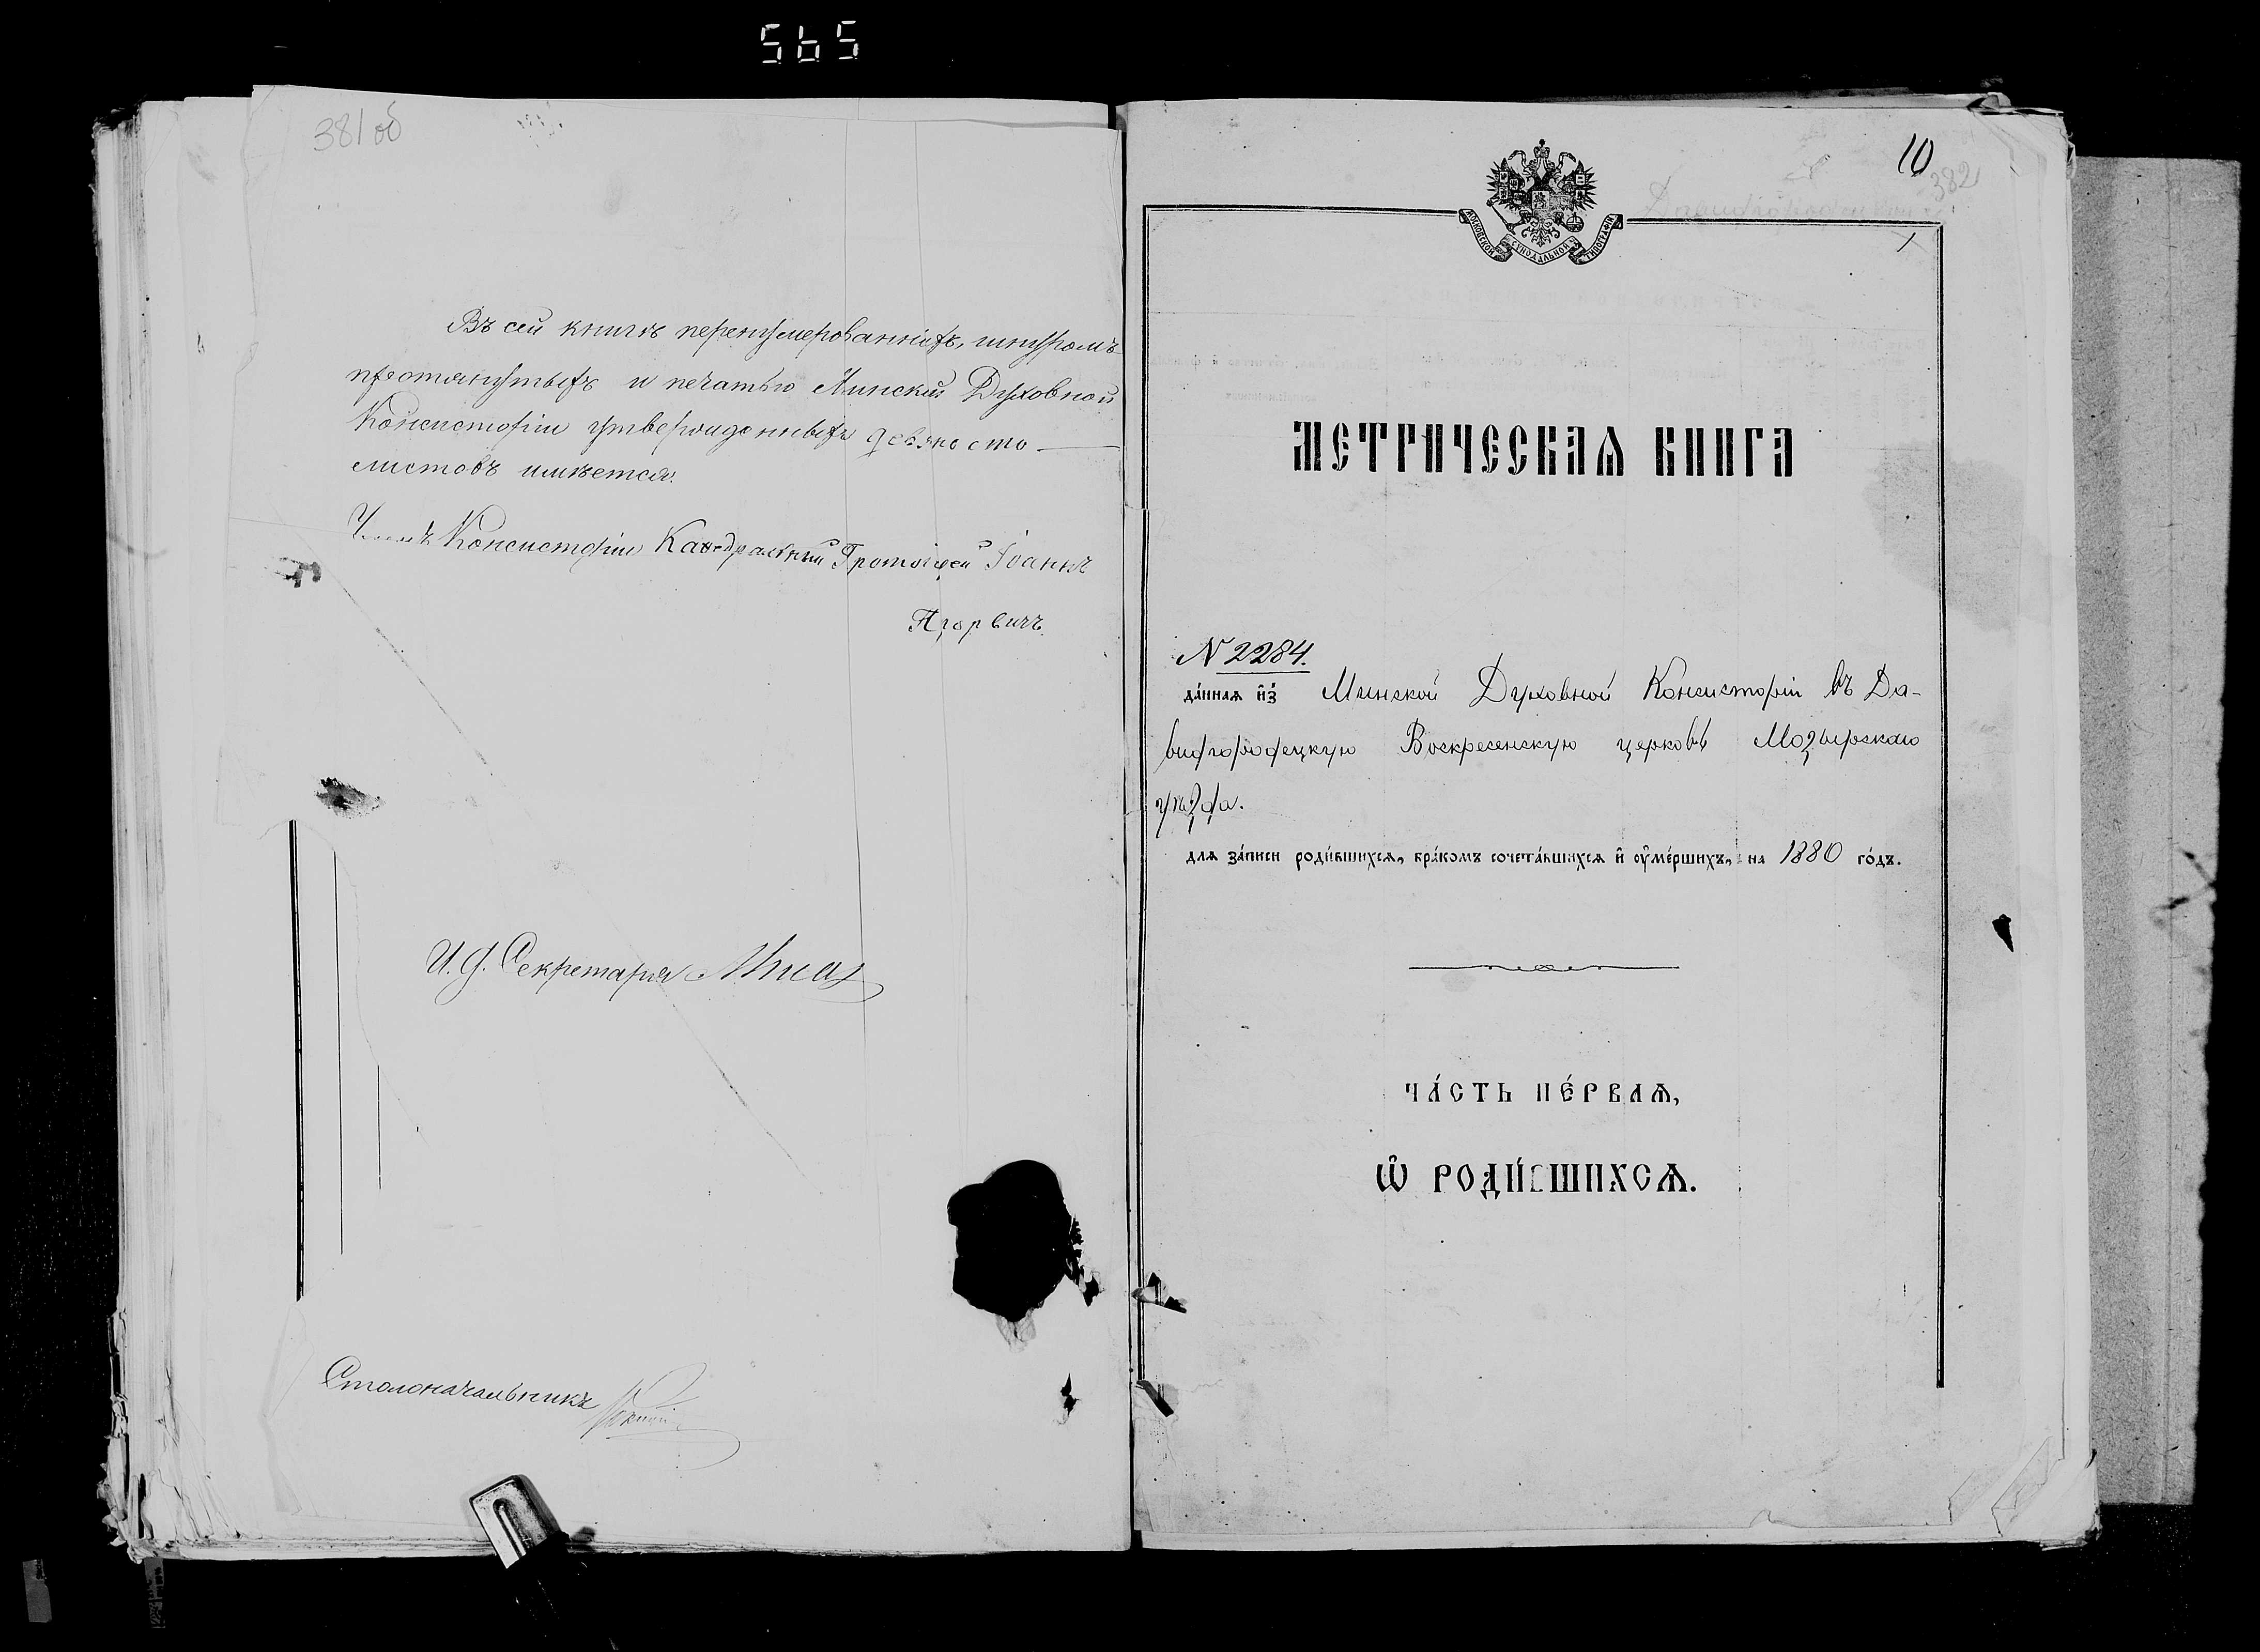 565
381 об
Въ сей книгѣ перенумерованныхъ, шнуромъ
протянутыхъ и печатью Минской Духовной
Консисторіи утвержденныхъ девяносто
листовъ имѣется.
Членъ Консисторіи Каѳедральный Протоіерей Іоаннъ
И. д. Секретаря
Столоначальникъ
10
382
1
МОСКОВСКОЙ СѴНОДАЛЬНОЙ ТИПОГРАФІИ
МЕТРИЧЕСКАѦ КНИГА
N 2284.
да́ннаѧ и҆з̾ Минской Духовной Консисторіи въ Да-
видгородецкую Воскресенскую церковь Мозырскаго
уѣзда.
длѧ за́писи роди́вшихсѧ, бра́комъ сочета́вшихсѧ и҆ ᲂу҆ме́ршихъ, на 1880 го́дъ.
ЧА́СТЬ ПЕ́РВАѦ,
Ѡ҆ РОДИ́ВШИХСѦ.